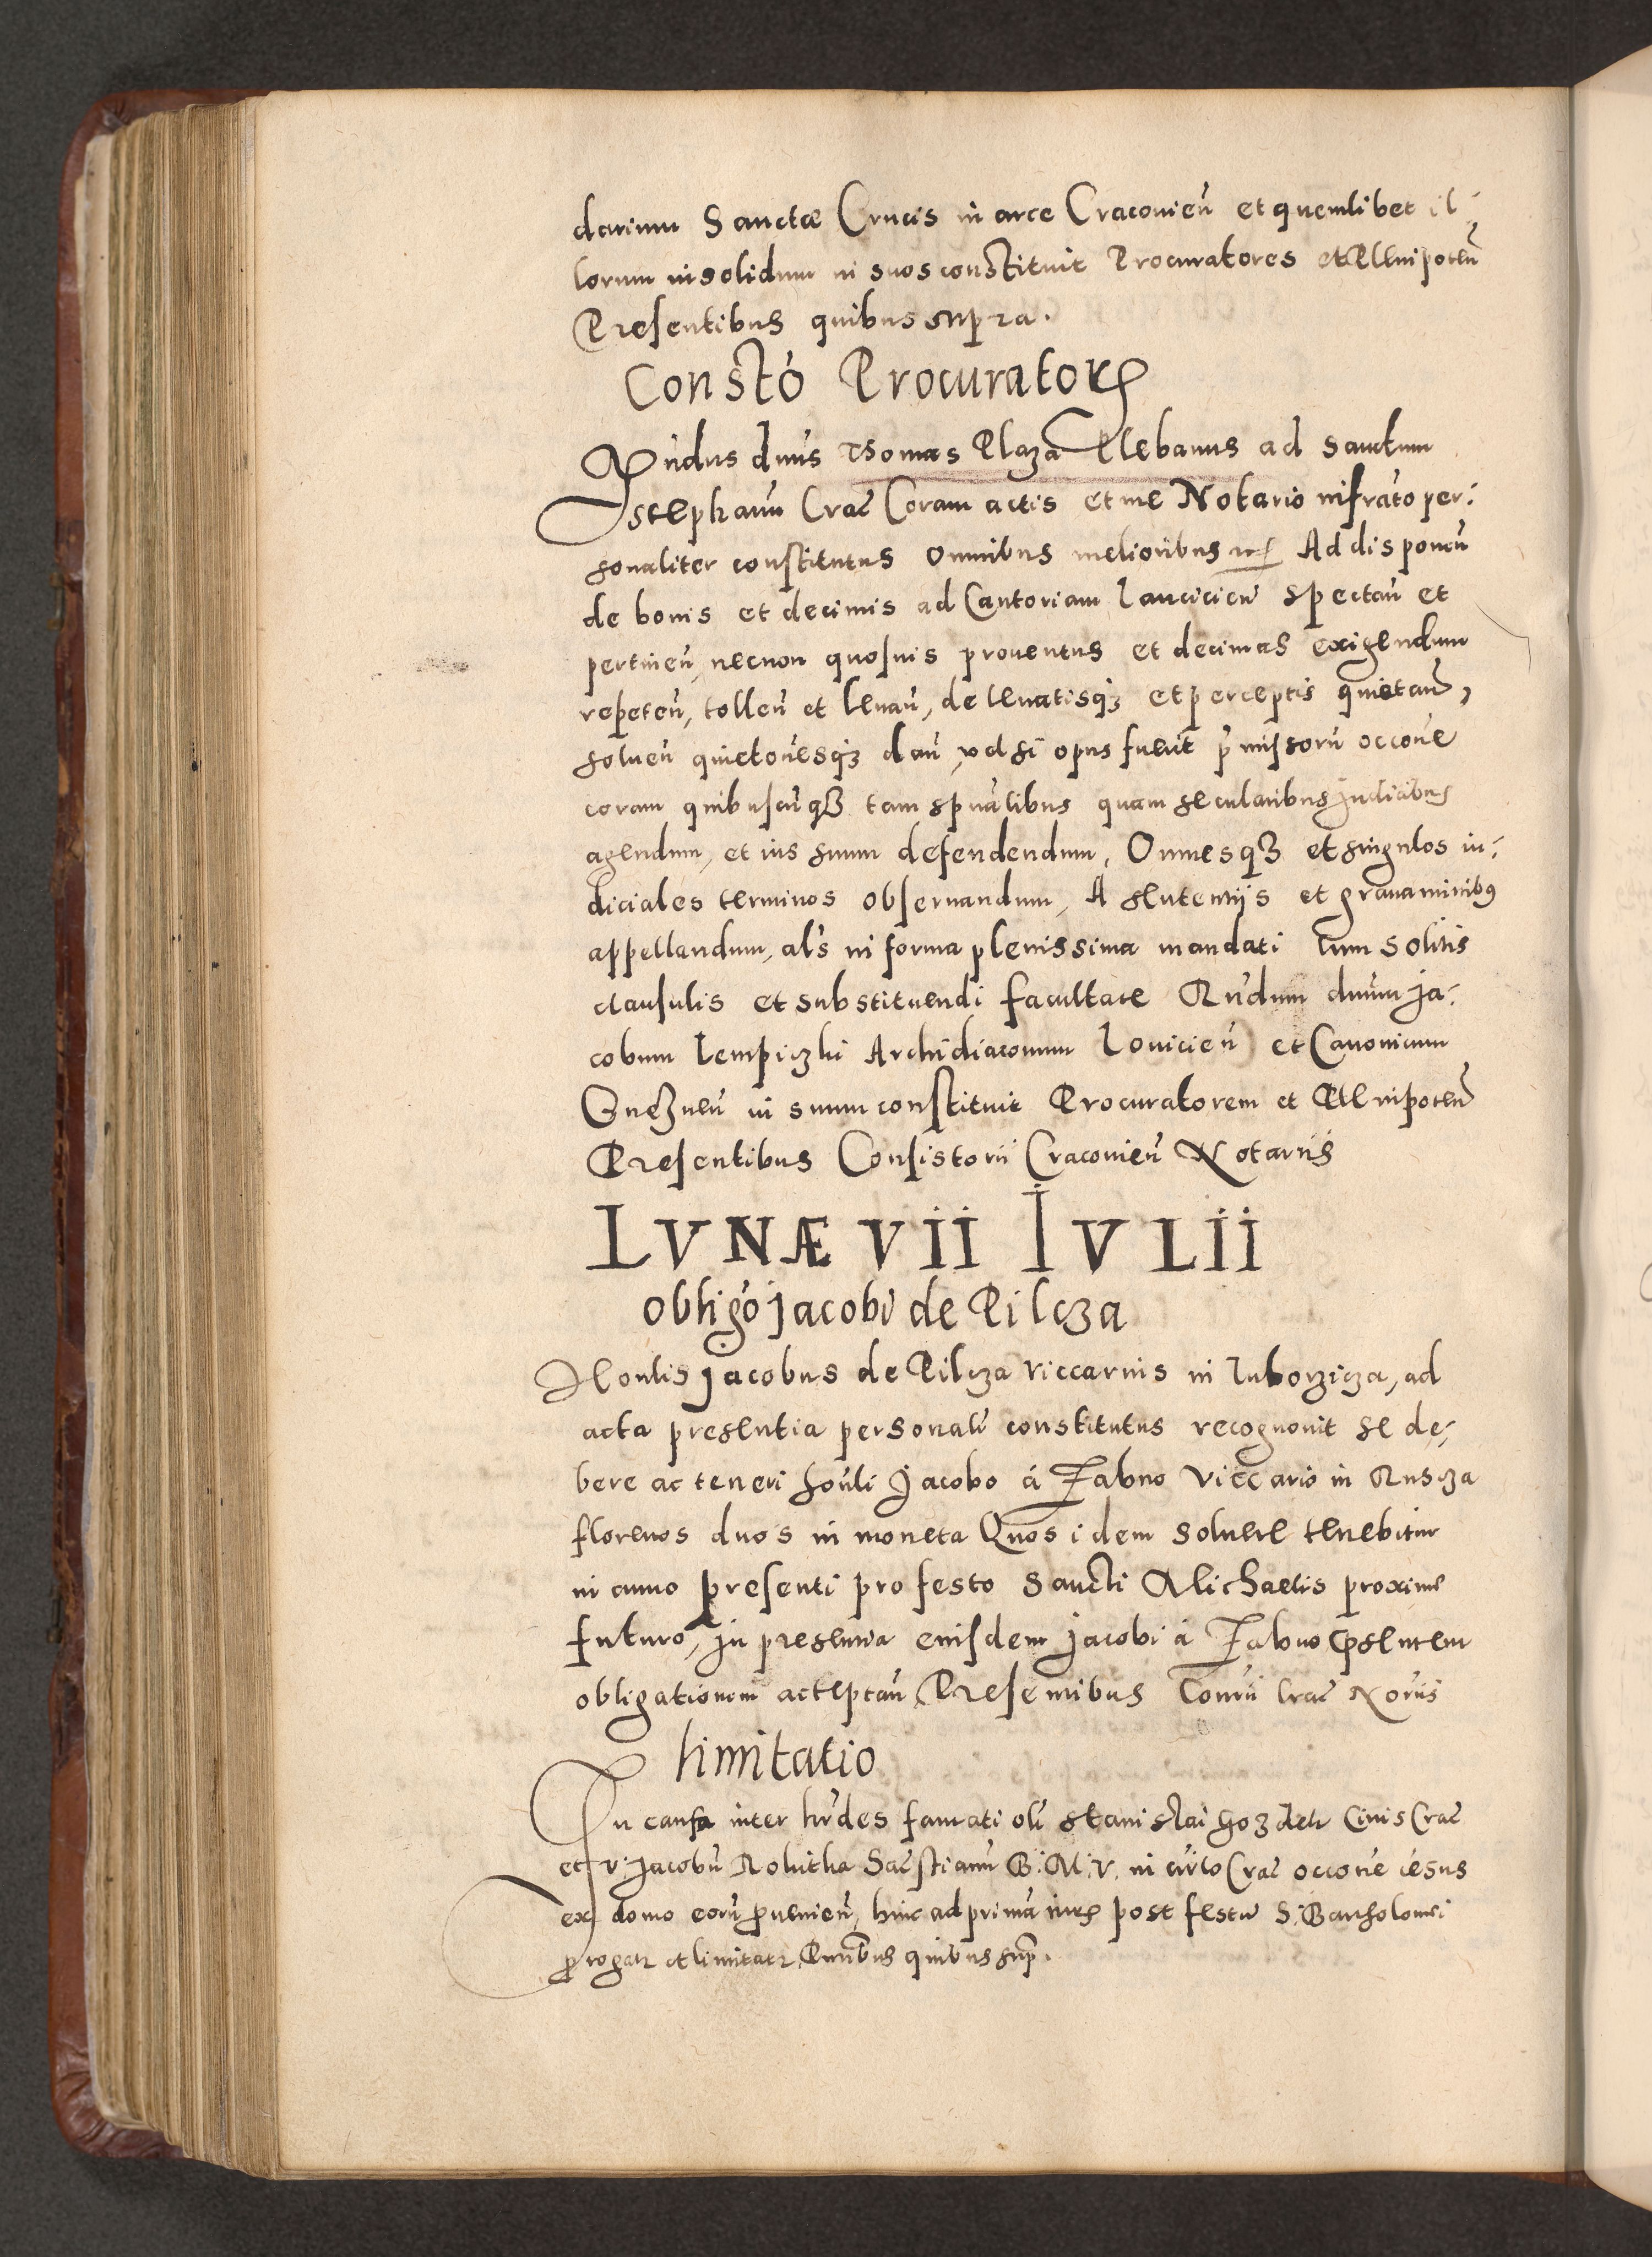 darium Sanctæ Crucis in arce Cracovień et quemlibet il-
lorum insolidum in suos constituit Procuratores et Plenipoteń
Presentibus quibus supra.
Constó Procuratorꝭ
Rńdus dńus Thomas Plaza Plebanus ad Sanctum
Stephanū Crač Coram actis et me Notario infrato per-
sonaliter constitutus Omnibus melioribus Ad disponeń
de bonis et decimis ad Cantoriam Lancicień spectań et
pertineń, necnon quosuis prouentus et decimas exigendum
repeteń, tolleń et leuań, de leuatisqȝ et perceptis quietań,
solueń quietońesqȝ dań, vel si opus fuerit p̄missorū occońe
coram quibuscūqȝ tam spūalibus quam secularibus Judicibus
agendum, et ius suum defendendum, Omnesqȝ et singulos iu-
diciales terminos obseruandum, A sententijs et grauaminibꝰ
appellandum, als in forma plenissima mandati Cum solitis
clausulis et substituendi facultate Rńdum dńum Ja-
cobum Lempiczki Archidiaconum Louicień et Canonicum
Gneznen̄ in suum constituit Procuratorem et Plenipoteń
Presentibus Consistorii Cracovień Notariis
LVNÆ VII IVLII
Obligó Jacobi de Pilcza
Honlis Jacobus de Pilcza Viccarius in Luborzicza, ad
acta presentia personalr̄ constitutus recognouit se de-
bere ac teneri hońli Jacobo á Zabno Viccario in Ruscza
florenos duos in moneta Quos idem soluere tenebitur
in anno presenti pro festo Sancti Michaelis proxime
futuro, In presentia eiusdem Jacobi á Zabno p̄sentem
obligationem acceptań Presentibus Conrii Crač Noriis
limitatio
In causa inter hr̄des famati oli Stanislai Civis Crač
et V: Jacobū Rokitka Sačstianū B: M: V. in cir̄to Crač occońe cēsus
ex domo eorū ꝓuenień, hinc ad primā iurꝭ post festū S. Bartholomei
ꝓrogatr et limitatr Pnt̄ibus quibus sup̄.